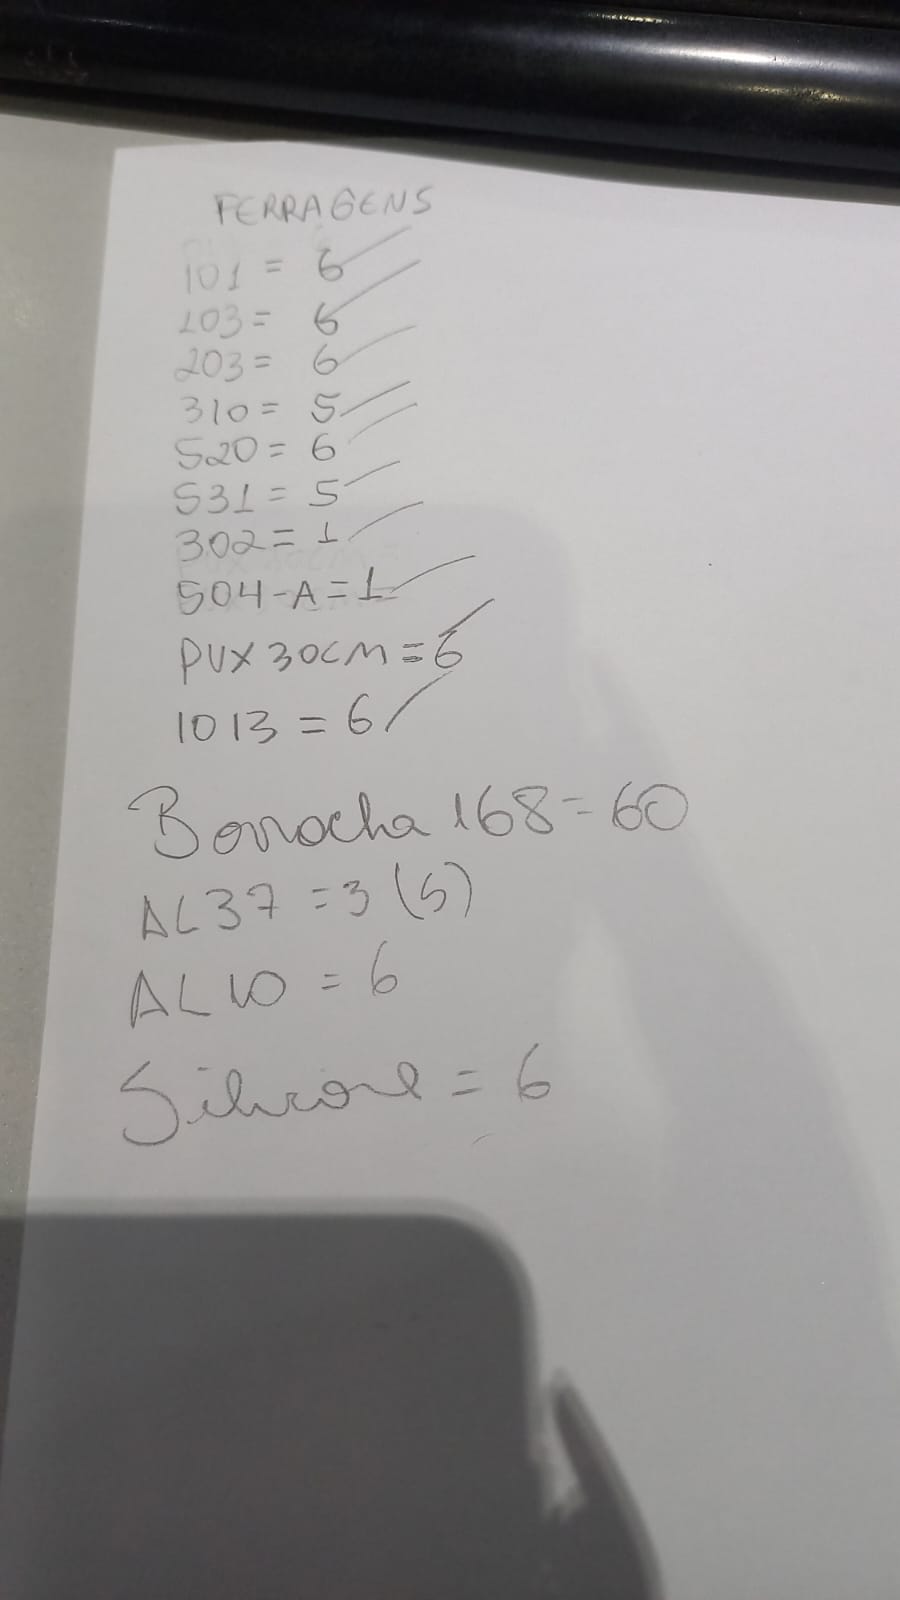 FERRAGENS
101 = 6
103 = 6
203 = 6
310 = 5
520 = 6
531 = 5
302 = 1
504-A = 1
PUX 30CM = 6
1013 = 6
Borracha 168 = 60
AL37 = 3 (5)
AL10 = 6
Silicone = 6